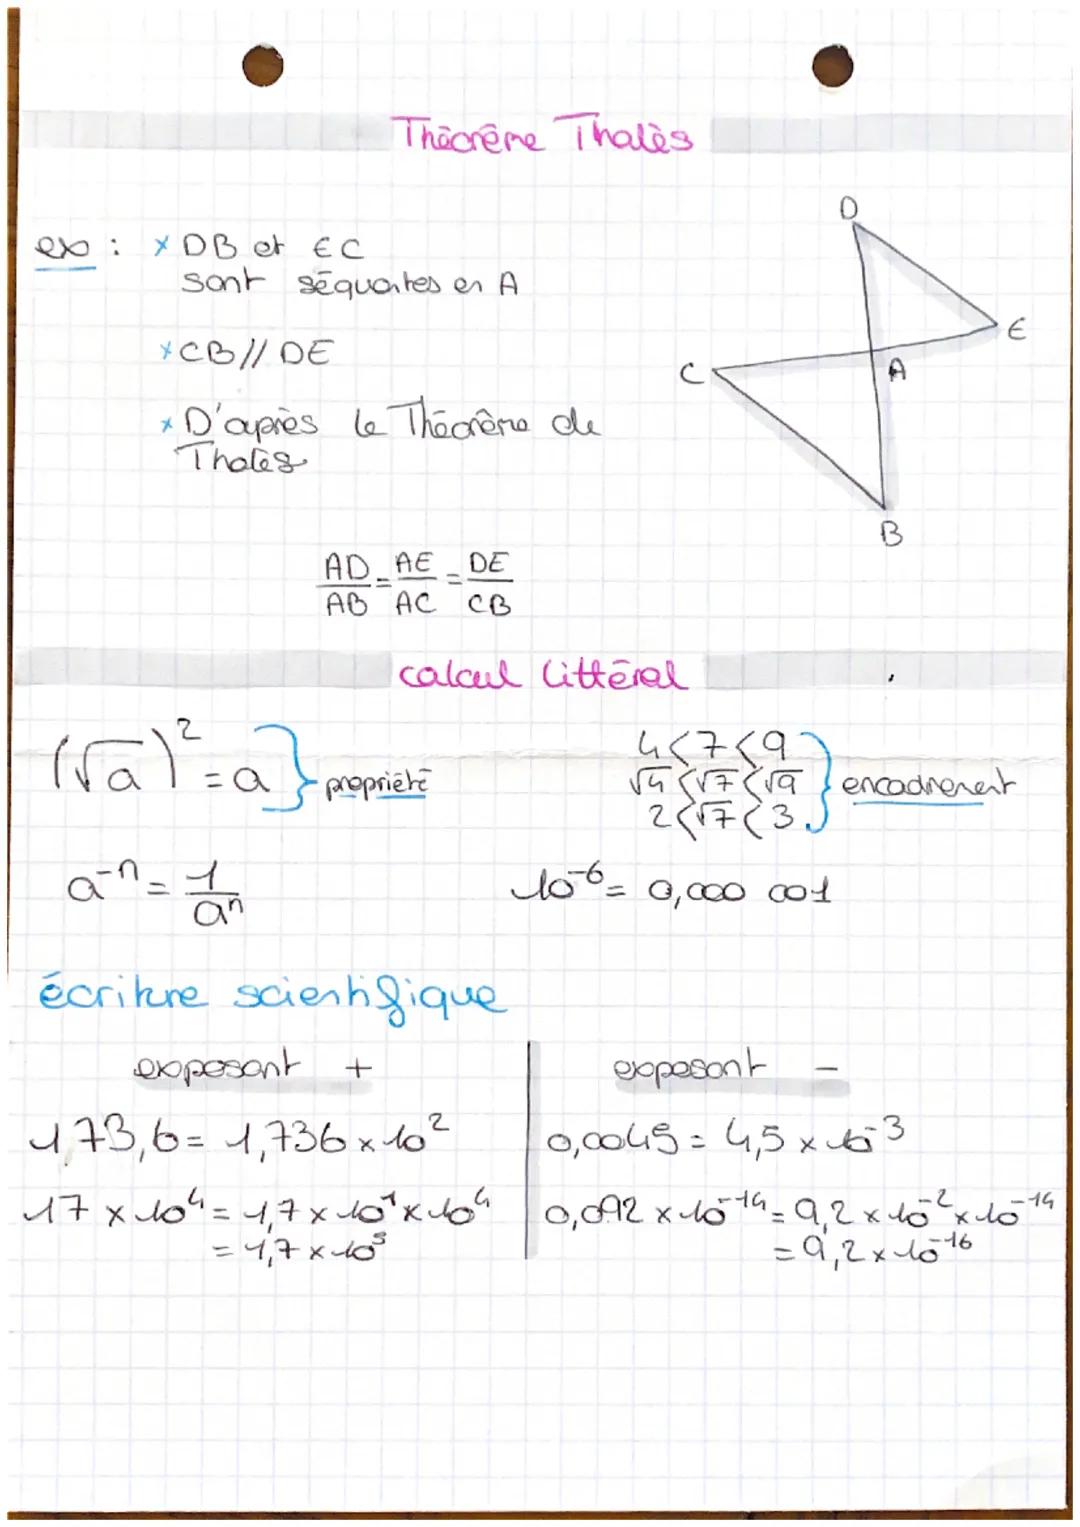 Théorême Thalès
ex : × DB et EC
sont séquantes en A
× CB // DE
× D'après le Théorême de
Thalès
AD/AB = AE/AC = DE/CB
D
E
C
A
B
calcul littéral
(√a)² = a } propriété
4 < 7 < 9
√4 < √7 < √9 } encadrement
2 < √7 < 3
a⁻ⁿ = 1/aⁿ
10⁻⁶ = 0,000 001
écriture scientifique
exposant +
173,6 = 1,736 × 10²
17 × 10⁴ = 1,7 × 10¹ × 10⁴
= 1,7 × 10⁵
exposant -
0,0045 = 4,5 × 10⁻³
0,092 × 10⁻¹⁴ = 9,2 × 10⁻² × 10⁻¹⁴
= 9,2 × 10⁻¹⁶